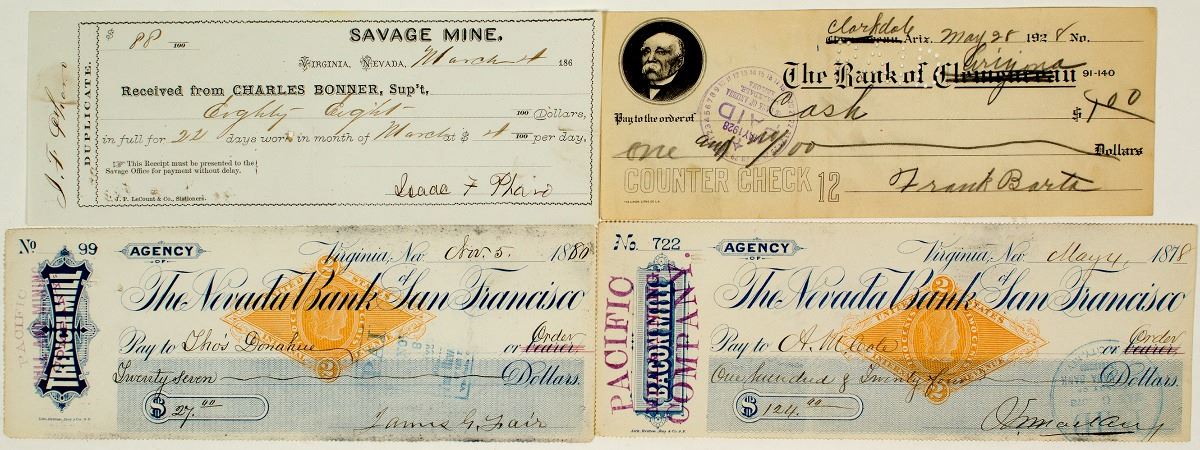 $ 88 100
SAVAGE MINE.
VIRGINIA, NEVADA, March 4 186
Received from CHARLES BONNER, Sup't,
Eighty Eight 100 Dollars,
in full for 22 days work in month of March at $ 4 100 per day.
☞ This Receipt must be presented to the
Savage Office for payment without delay.
Isaac F Phair
J. P. LeCount & Co., Stationers.
DUPLICATE.
Clarkdale Ariz. May 28 1928 No.
Arizona
The Bank of Clemenceau 91-140
Pay to the order of Cash $1.00
one and no/100 Dollars
COUNTER CHECK 12
Frank Barta
PAID
MAY 1928
No 99
AGENCY
OF
Virginia, Nev Nov. 5. 1880
The Nevada Bank of San Francisco
Pay to Tho's Donahue or bearer
Order
Twenty Seven Dollars.
$ 27.00
James G. Fair
TRENCH MILL
PACIFIC
No. 722
AGENCY
OF
Virginia, Nev May 4, 1878
The Nevada Bank of San Francisco
Pay to A. M. Cole or bearer
Order
One hundred & Twenty four Dollars.
$ 124.00
BACON MILL
PACIFIC
COMPANY.